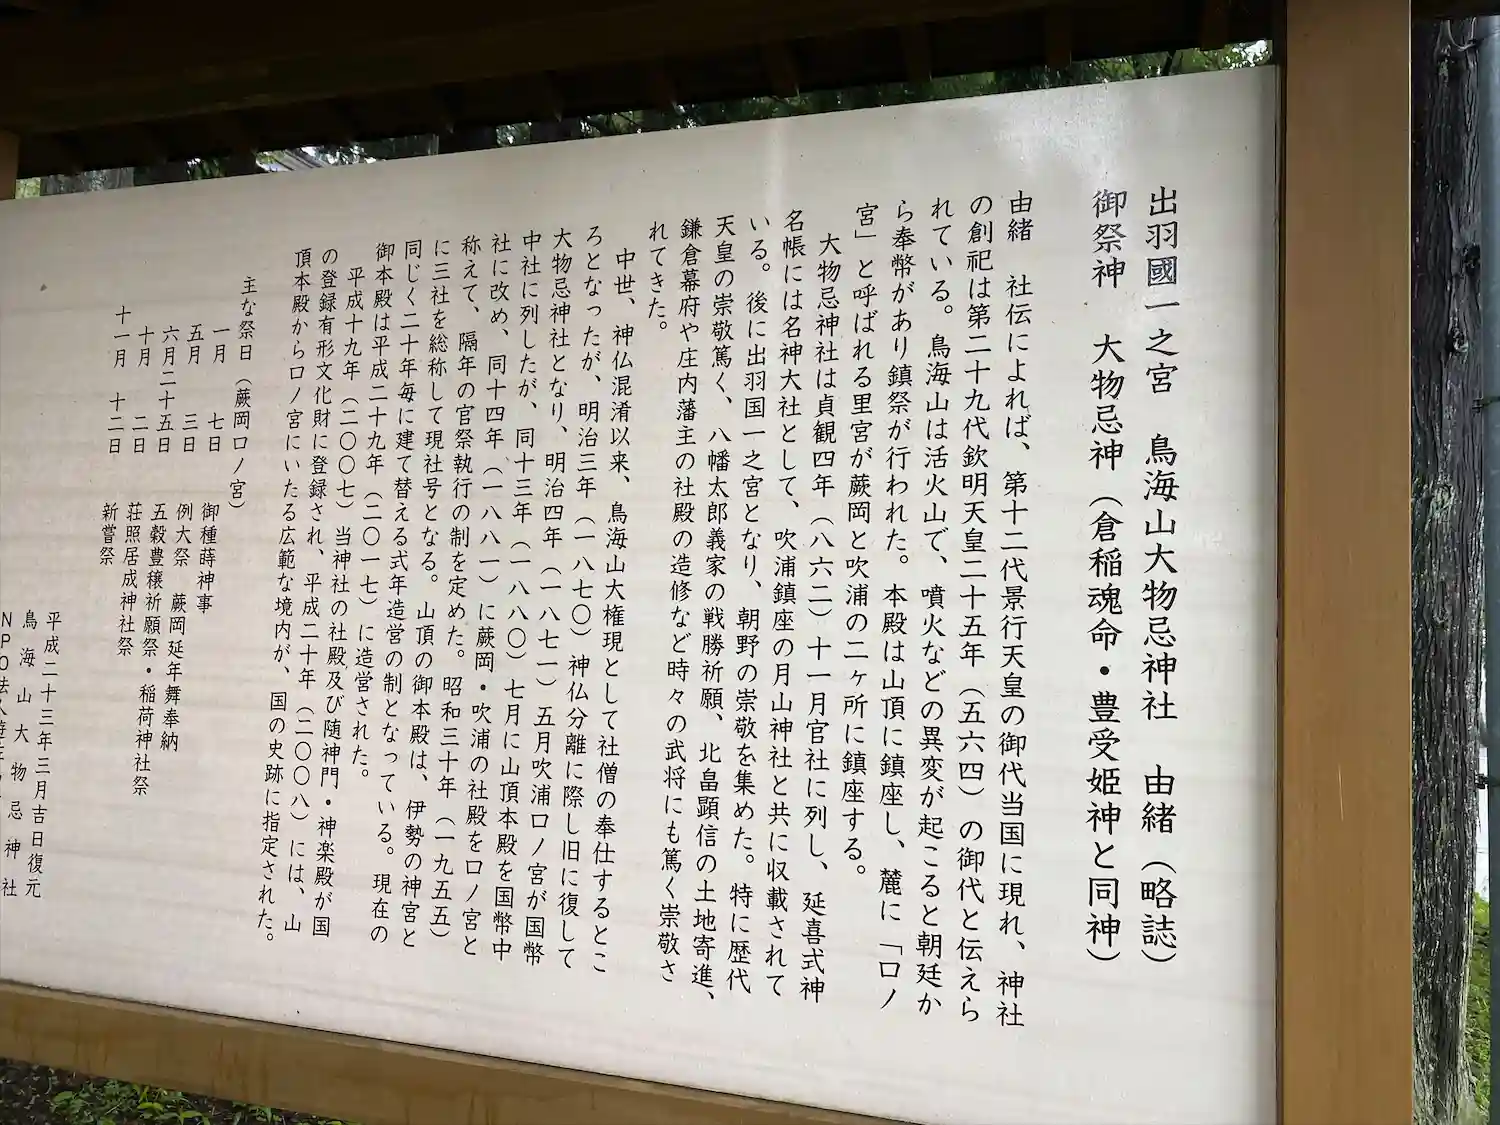 出羽國一之宮　鳥海山大物忌神社　由緒（略誌）
御祭神　大物忌神（倉稲魂命・豊受姫神と同神）
由緒　社伝によれば、第十二代景行天皇の御代当国に現れ、神社
の創祀は第二十九代欽明天皇二十五年（五六四）の御代と伝えら
れている。鳥海山は活火山で、噴火などの異変が起こると朝廷か
ら奉幣があり鎮祭が行われた。本殿は山頂に鎮座し、麓に「口ノ
宮」と呼ばれる里宮が蕨岡と吹浦の二ヶ所に鎮座する。
大物忌神社は貞観四年（八六二）十一月官社に列し、延喜式神
名帳には名神大社として、吹浦鎮座の月山神社と共に収載されて
いる。後に出羽国一之宮となり、朝野の崇敬を集めた。特に歴代
天皇の崇敬篤く、八幡太郎義家の戦勝祈願、北畠顕信の土地寄進、
鎌倉幕府や庄内藩主の社殿の造修など時々の武将にも篤く崇敬さ
れてきた。
中世、神仏混淆以来、鳥海山大権現として社僧の奉仕するとこ
ろとなったが、明治三年（一八七〇）神仏分離に際し旧に復して
大物忌神社となり、明治四年（一八七一）五月吹浦口ノ宮が国幣
中社に列したが、同十三年（一八八〇）七月に山頂本殿を国幣中
社に改め、同十四年（一八八一）に蕨岡・吹浦の社殿を口ノ宮と
称えて、隔年の官祭執行の制を定めた。昭和三十年（一九五五）
に三社を総称して現社号となる。山頂の御本殿は、伊勢の神宮と
同じく二十年毎に建て替える式年造営の制となっている。現在の
御本殿は平成二十九年（二〇一七）に造営された。
平成十九年（二〇〇七）当神社の社殿及び随神門・神楽殿が国
の登録有形文化財に登録され、平成二十年（二〇〇八）には、山
頂本殿から口ノ宮にいたる広範な境内が、国の史跡に指定された。
主な祭日（蕨岡口ノ宮）
一月　七日　御種蒔神事
五月　三日　例大祭　蕨岡延年舞奉納
六月二十五日　五穀豊穣祈願祭・稲荷神社祭
十月　二日　荘照居成神社祭
十一月　十二日　新嘗祭
平成二十三年三月吉日復元
鳥海山大物忌神社
NPO法人